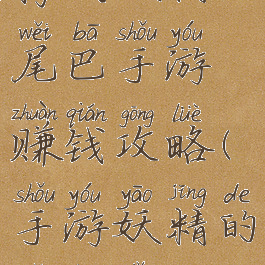 wěi bā shǒu yóu
尾巴手游
zhuàn qián gōng lüè
赚钱攻略(
shǒu yóu yāo jīng de
手游妖精的